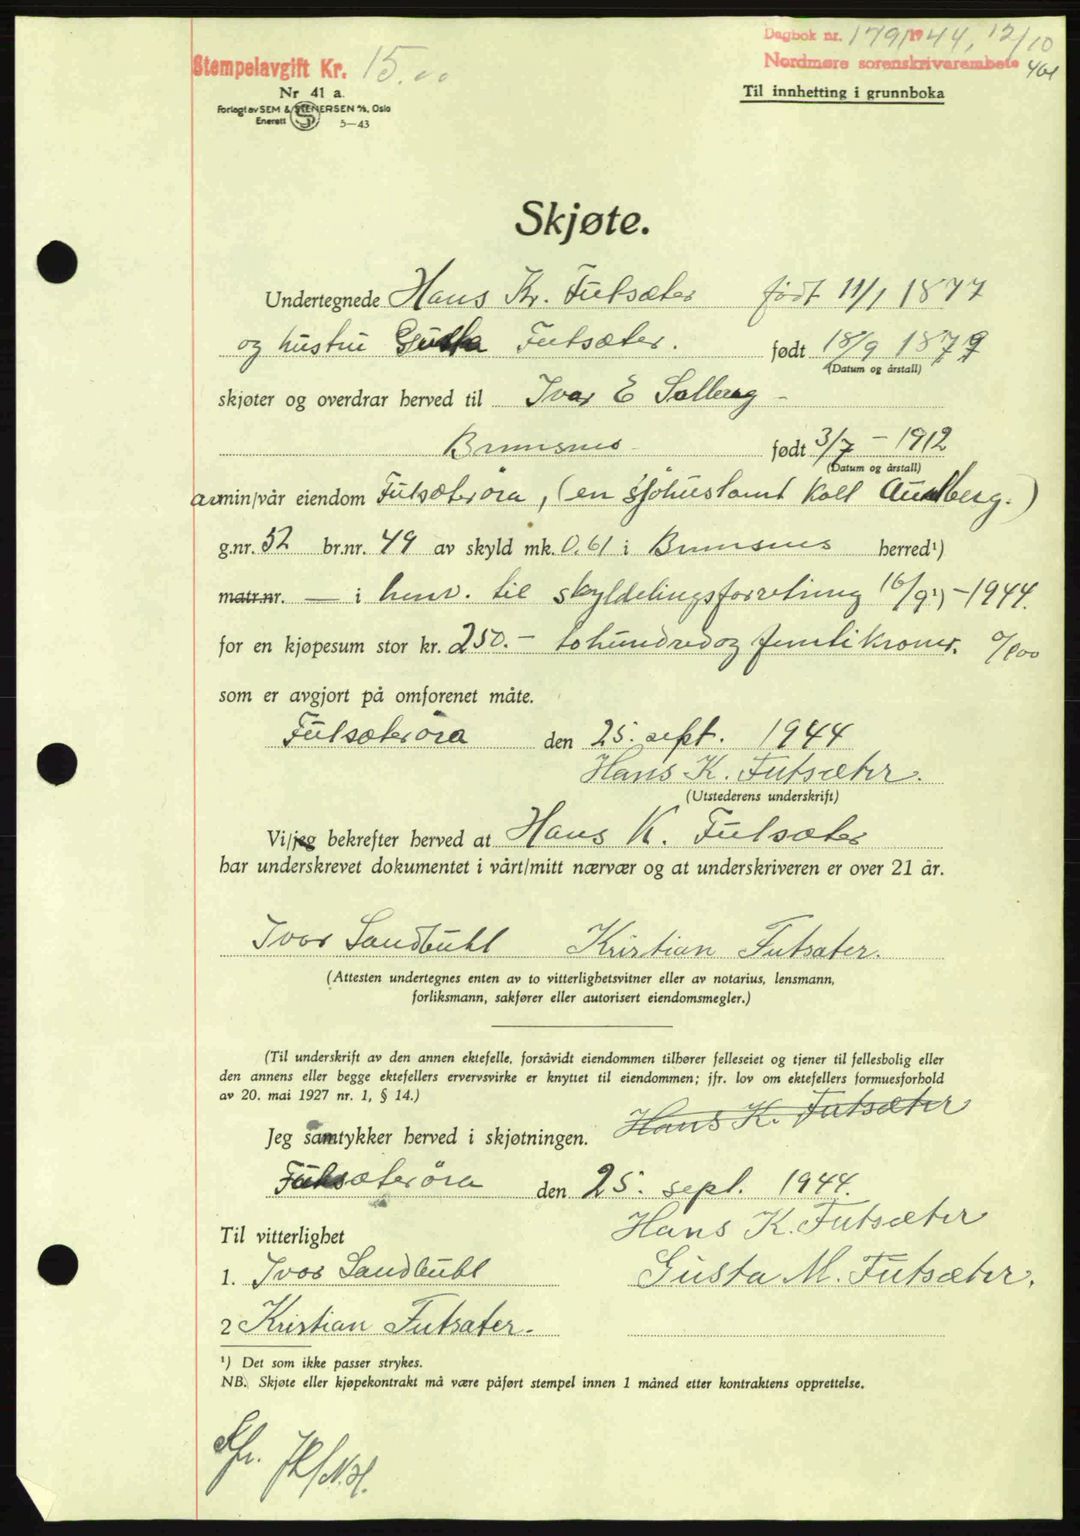 Stempelavgift Kr. 15.00
Dagbok nr. 1791 1944, 12/10
Nordmøre sorenskriverembete
Nr 41 a.
Til innhetting i grunnboka
Forlagt av SEM & STENERSEN A/S, Oslo
Enerett S 5-43
Skjøte.
Undertegnede Hans Kr. Futsæter født 11/1 1877
og hustru Gusta Futsæter. født 18/9 1879
(Datum og årstall)
skjøter og overdrar herved til Ivar E Solberg -
Bremsnes født 3/7 - 1912
(Datum og årstall)
av min/vår eiendom Futsæterøra, (en sjøhustomt kall )
g.nr. 52 br.nr. 49 av skyld mk. 0.61 i Bremsnes herred¹)
matr.nr. — i henv. til skyldelingsforretning 16/9 ¹) - 1944.
for en kjøpesum stor kr. 250.- tohundredog femti kroner. 0/100
som er avgjort på omforenet måte.
Futsæterøra den 25. sept. 1944
Hans K. Futsæter.
(Utstederens underskrift)
Vi/jeg bekrefter herved at Hans K. Futsæter
har underskrevet dokumentet i vårt/mitt nærvær og at underskriveren er over 21 år.
Ivar Sandbukt Kristian Futsæter.
(Attesten undertegnes enten av to vitterlighetsvitner eller av notarius, lensmann,
forliksmann, sakfører eller autorisert eiendomsmegler.)
(Til underskrift av den annen ektefelle, forsåvidt eiendommen tilhører felleseiet og tjener til fellesbolig eller
den annens eller begge ektefellers ervervsvirke er knyttet til eiendommen; jfr. lov om ektefellers formuesforhold
av 20. mai 1927 nr. 1, § 14.)
Hans K. Futsæter
Jeg samtykker herved i skjøtningen.
Futsæterøra den 25. sept. 1944.
Hans K. Futsæter
Til vitterlighet
1. Ivar Sandbukt Gusta M. Futsæter.
2 Kristian Futsæter.
¹) Det som ikke passer strykes.
NB. Skjøte eller kjøpekontrakt må være påført stempel innen 1 måned etter kontraktens opprettelse.